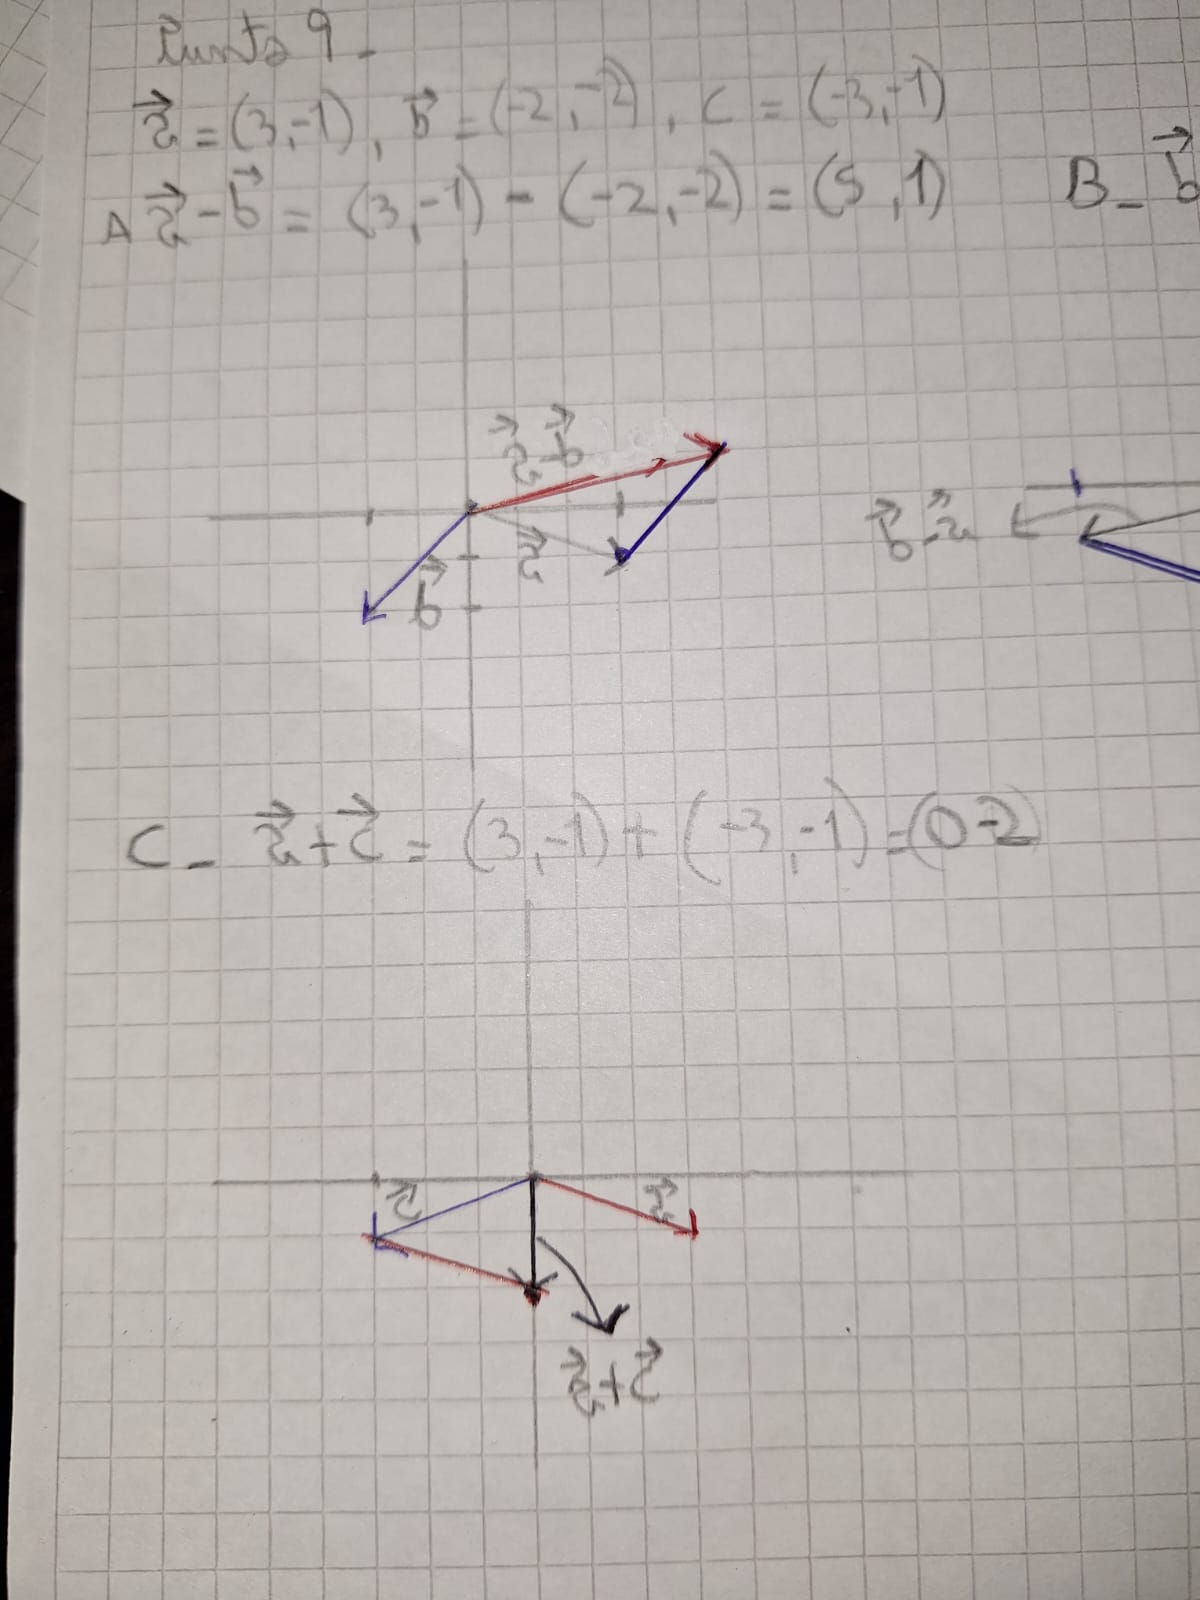 Punto 9-
a⃗ = (3,-1), b⃗ = (-2,-2), c = (-3,-1)
A a⃗ - b⃗ = (3,-1) - (-2,-2) = (5,1) B- b⃗
a⃗-b⃗
b⃗-a⃗
a⃗
b⃗
C- a⃗+c⃗ = (3,-1)+(-3,-1)=(0-2)
c⃗ a⃗
a⃗+c⃗